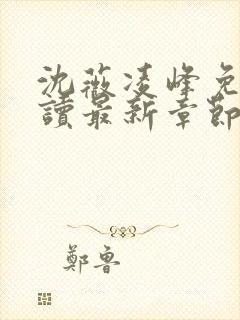 沈薇凌峰免
讀最新章節
鄭魯